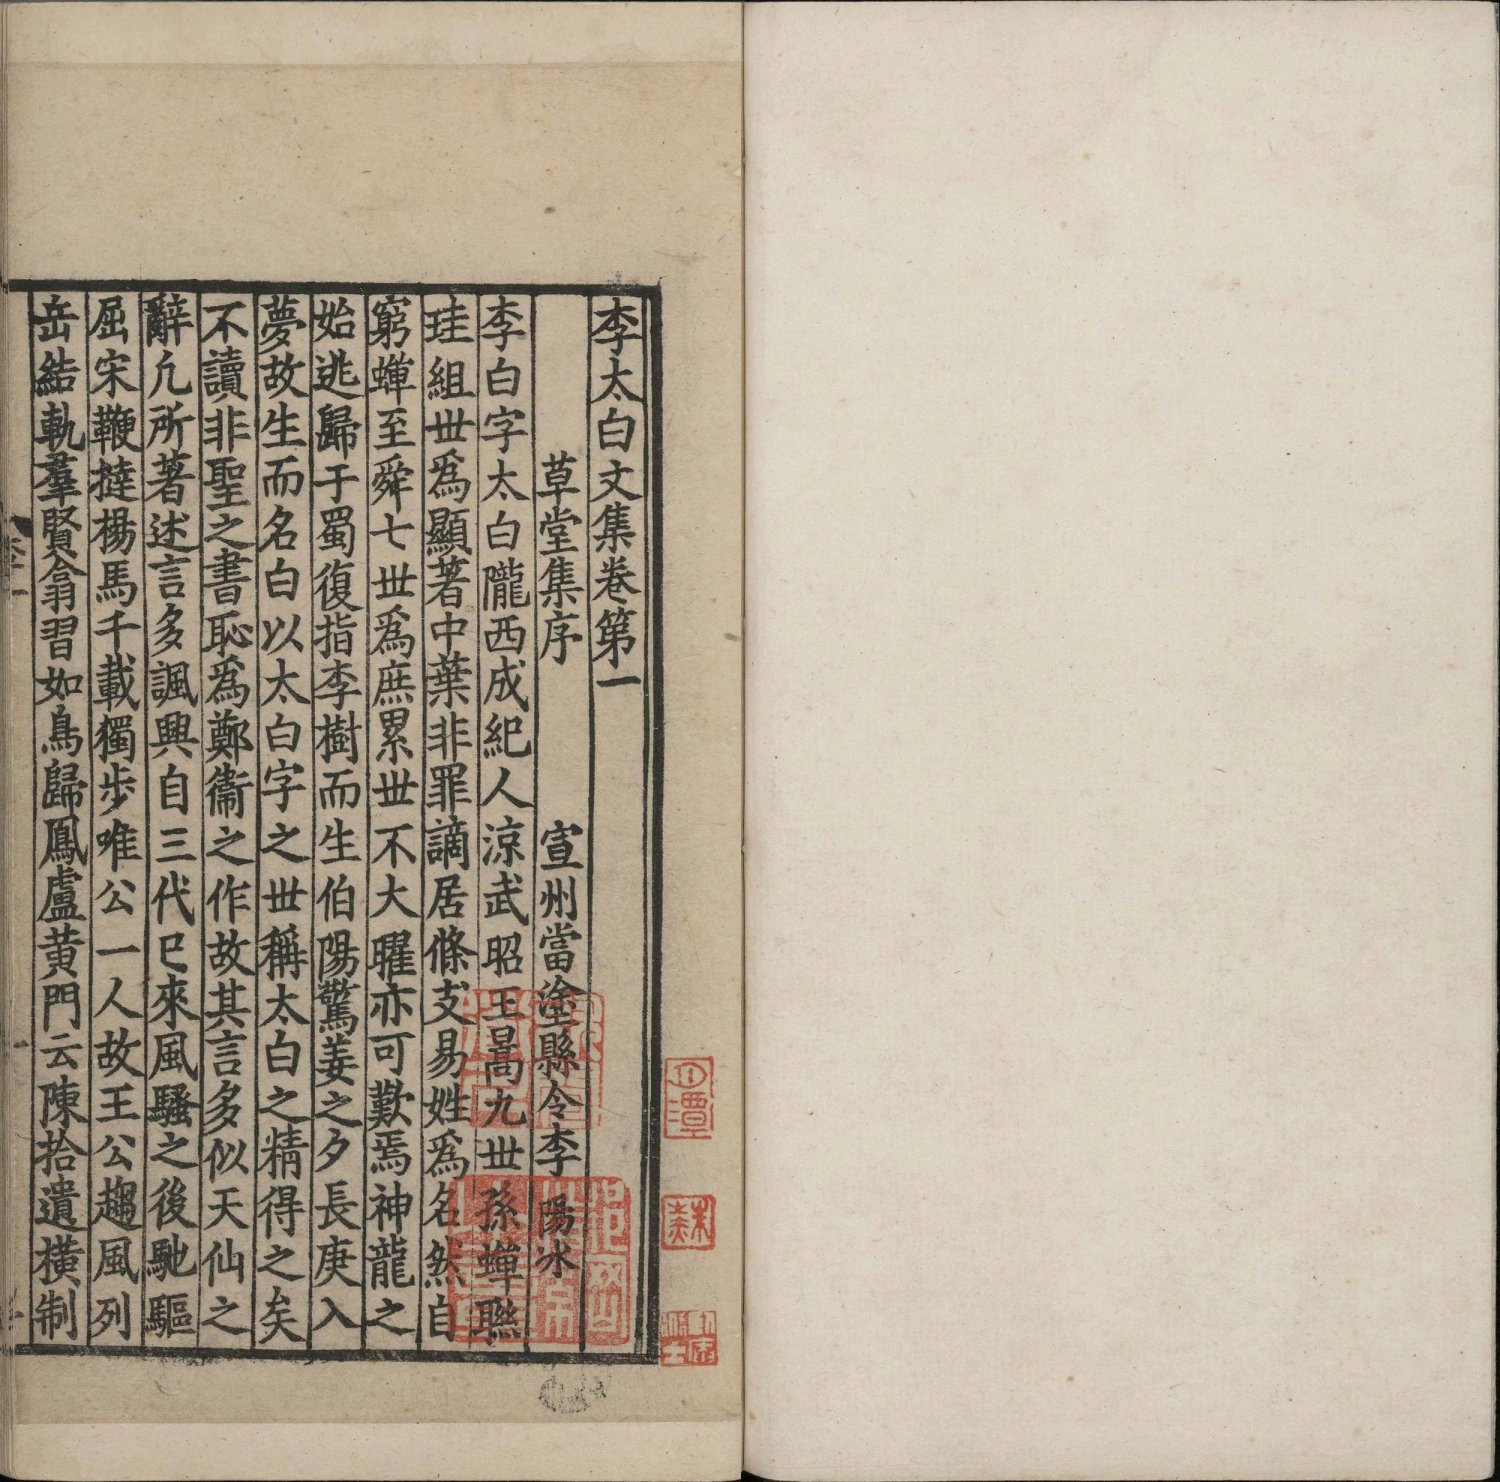 李太白文集卷第一
草堂集序　宣州當塗縣令李陽冰
李白字太白隴西成紀人涼武昭王暠九丗孫蟬聯
珪組丗爲顯著中葉非罪謫居條支易姓爲名然自
窮蟬至舜七丗爲庶累丗不大曜亦可歎焉神龍之
始逃歸于蜀復指李樹而生伯陽驚姜之夕長庚入
夢故生而名白以太白字之丗稱太白之精得之矣
不讀非聖之書恥爲鄭衞之作故其言多似天仙之
辭凢所著述言多諷興自三代已來風騷之後馳驅
屈宋鞭撻楊馬千載獨步唯公一人故王公趨風列
岳結軌羣賢翕習如鳥歸鳳盧黃門云陳拾遺橫制